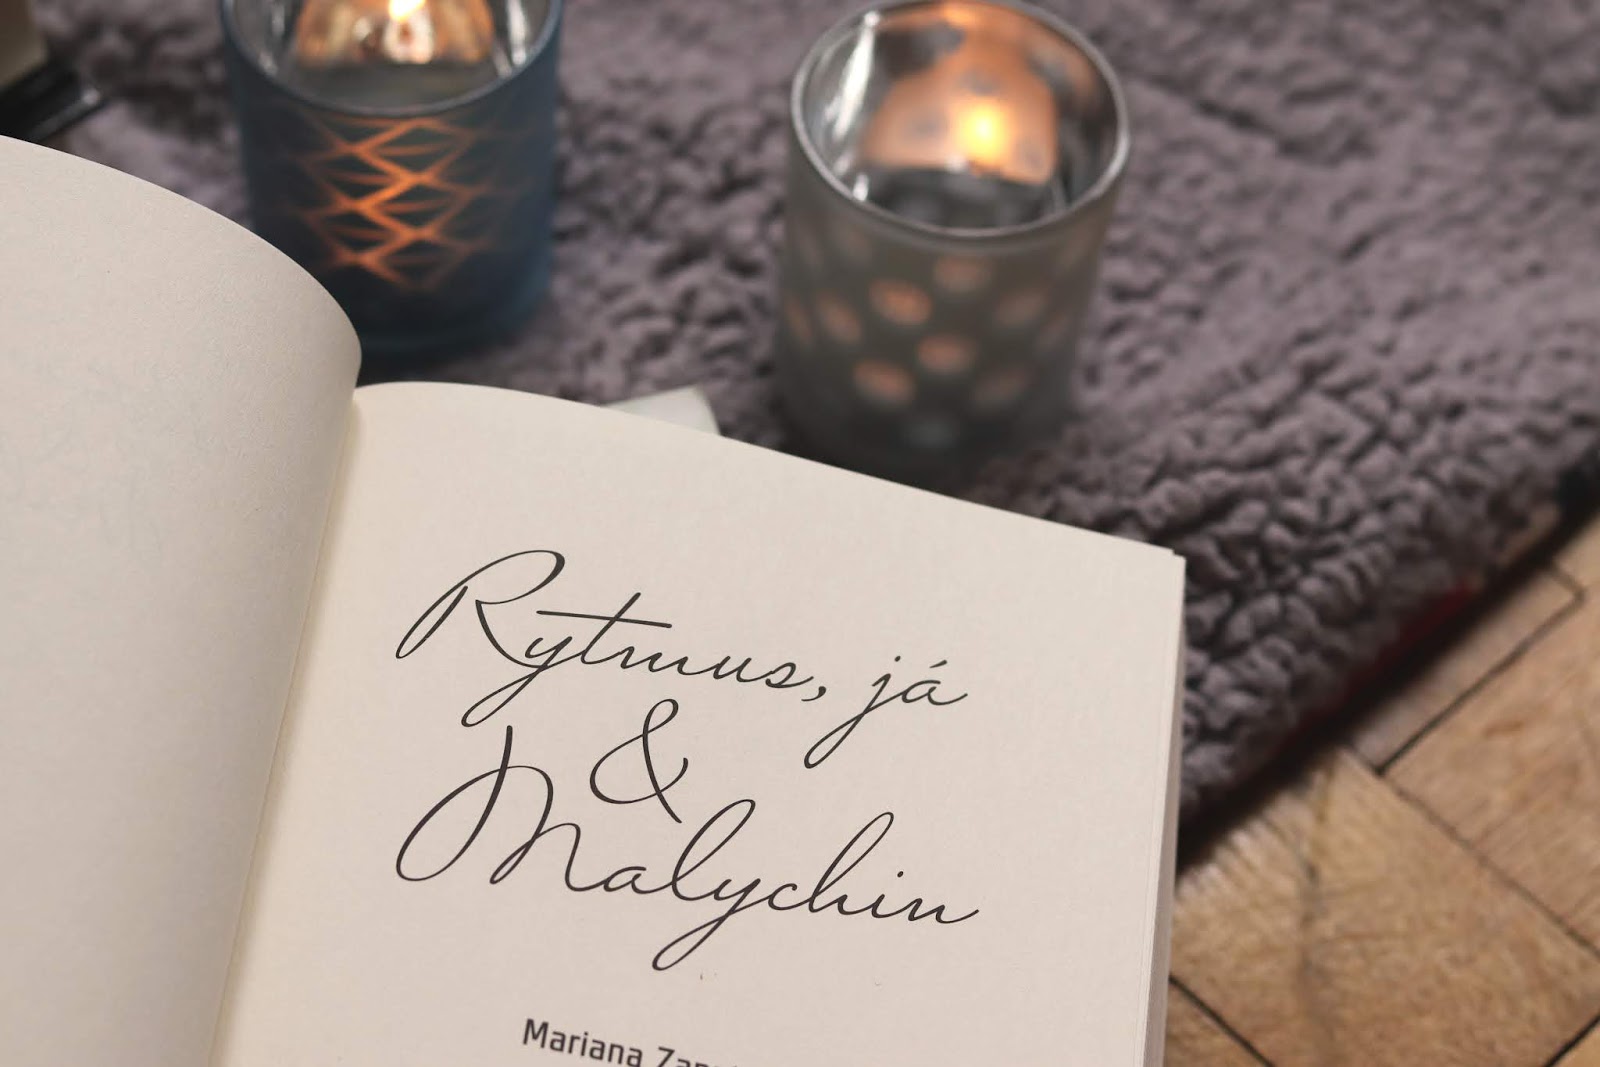 Rytmus, já
&
Malychin
Mariana